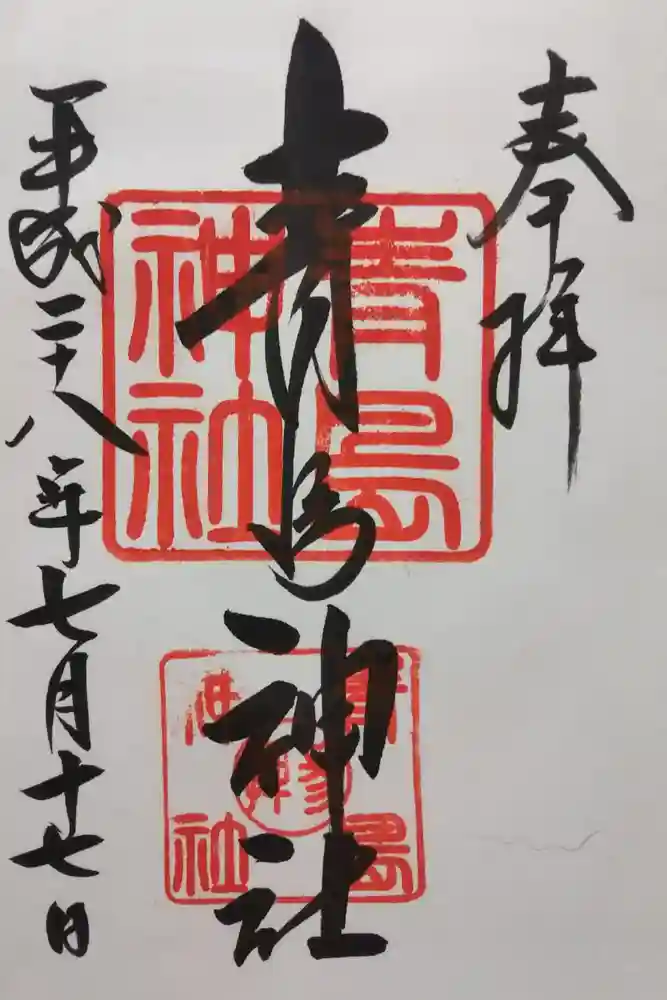 奉拝
青島神社
平成二十八年七月十七日
青島
神社
青島
神社
参拜